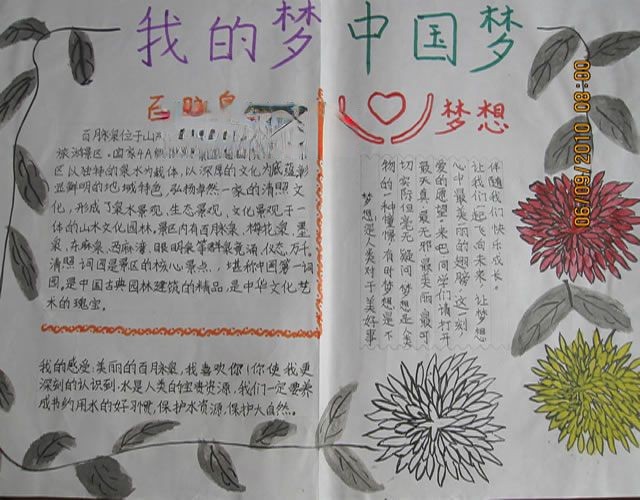 我的梦 中国梦
百脉泉
百脉泉位于山
旅游景区。国家4A
区以独特的泉水为载体,以深厚的文化为底蕴,彰
显鲜明的地域特色,弘杨卓然一家的清照文
化,形成了泉水景观,生态景观,文化景观于一
体的山水文化园林,景区内有百脉泉、梅花泉、墨
泉、东麻泉、西麻湾、眼明泉等群泉竞涌、仪态万千。
清照词园是景区的核心景点,堪称中国第一词
园,是中国古典园林建筑的精品,是中华文化艺
术的瑰宝。
我的感受:美丽的百月脉泉,我喜欢你!你使我更
深刻的认识到:水是人类的宝贵资源,我们一定要养
成节约用水的好习惯,保护水资源,保护大自然。
梦想
梦想是人类对于美好事
物的一种憧憬,有时梦想是不
切实际但毫无疑问梦想是人类
最天真最无邪最美丽最可
爱的愿望,来吧同学们请打开
心中最美丽的翅膀,这一刻
让我们起飞向未来,让梦想
伴随我们快乐成长。
06/09/2010 08:00